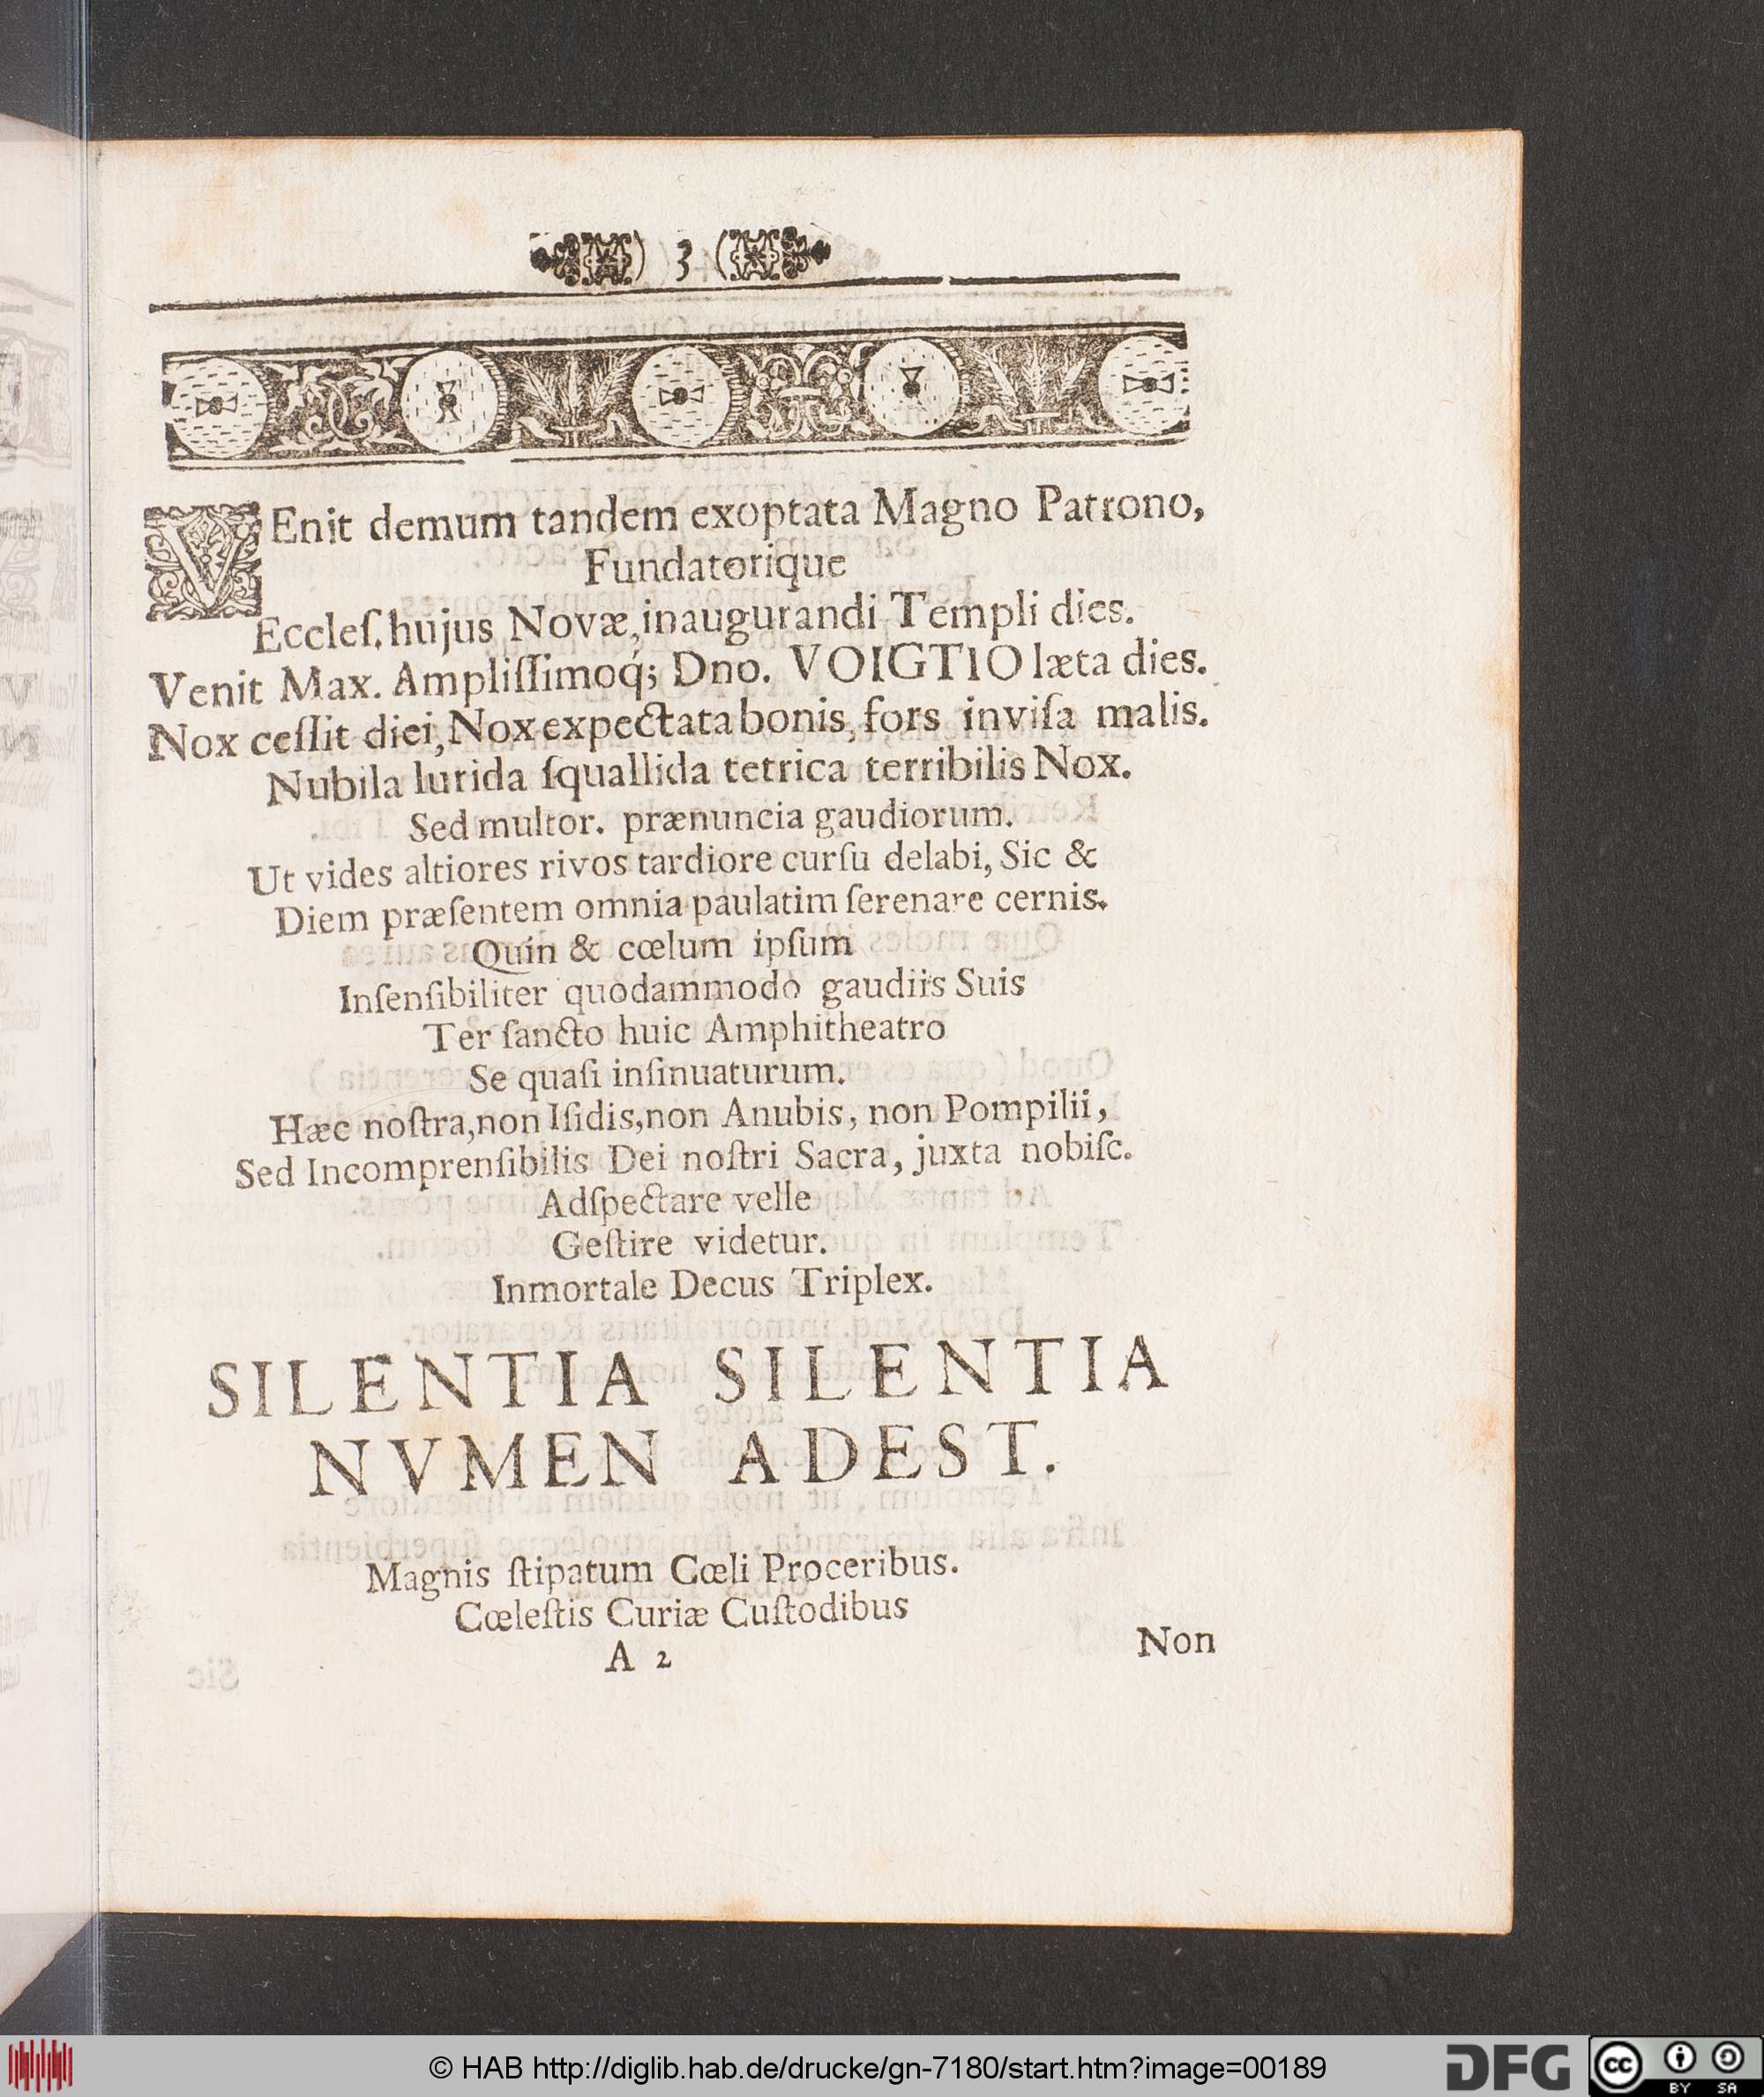 ) 3 (
VEnit demum tandem exoptata Magno Patrono,
Fundatorique
Eccleſ. hujus Novæ, inaugurandi Templi dies.
Venit Max. Ampliſſimoq́; Dno. VOIGTIO læta dies.
Nox ceſſit diei, Nox expectata bonis, fors inviſa malis.
Nubila lurida ſquallida tetrica terribilis Nox.
Sed multor. prænuncia gaudiorum.
Ut vides altiores rivos tardiore curſu delabi, Sic &
Diem præſentem omnia paulatim ſerenare cernis.
Quin & cœlum ipſum
Inſenſibiliter quodammodò gaudiis Suis
Ter ſancto huic Amphitheatro
Se quaſi inſinuaturum.
Hæc noſtra, non Iſidis, non Anubis, non Pompilii,
Sed Incomprenſibilis Dei noſtri Sacra, juxta nobiſc.
Adſpectare velle
Geſtire videtur.
Inmortale Decus Triplex.
SILENTIA SILENTIA
NVMEN ADEST.
Magnis ſtipatum Cœli Proceribus.
Cœleſtis Curiæ Cuſtodibus
A 2
Non
© HAB http://diglib.hab.de/drucke/gn-7180/start.htm?image=00189
DFG
cc
BY SA